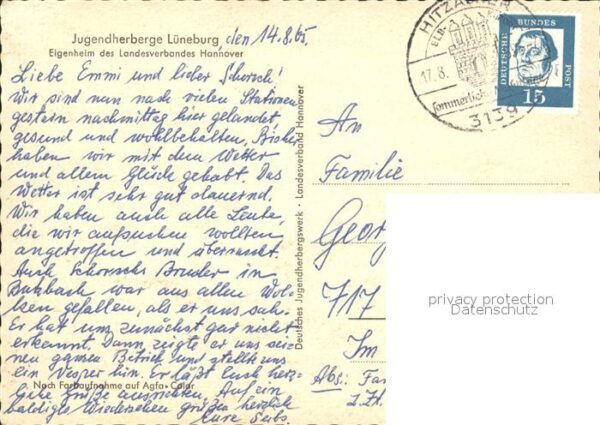 Jugendherberge Lüneburg, den 14.8.65
Eigenheim des Landesverbandes Hannover
Liebe Emmi und lieber Schorsch!
Wir sind nun nach vielen Stationen
gestern nachmittag hier gelandet
gesund und wohlbehalten. Bisher
haben wir mit dem Wetter
und allem Glück gehabt. Das
Wetter ist sehr gut dauernd.
Wir haben auch alle Leute,
die wir aufsuchen wollten
angetroffen und überrascht.
Auch Schorschs Bruder in
Sulzbach war aus allen Wol-
ken gefallen, als er uns sah.
Er hat uns zunächst gar nicht
erkannt. Dann zeigte er uns sei-
nen ganzen Betrieb und stellte uns
ein Vesper hin. Er läßt Euch herz-
liche Grüße ausrichten. Auf ein
baldiges Wiedersehen grüßen herzlich
Eure Seibs.
Nach Farbaufnahme auf Agfa-Color
Deutsches Jugendherbergswerk · Landesverband Hannover
HITZACKER
ELB-
17.8.
sommerlich
3139
DEUTSCHE BUNDESPOST
15
An
Familie
Georg
717
Im
Abs: Fam
z.Zt.
privacy protection
Datenschutz